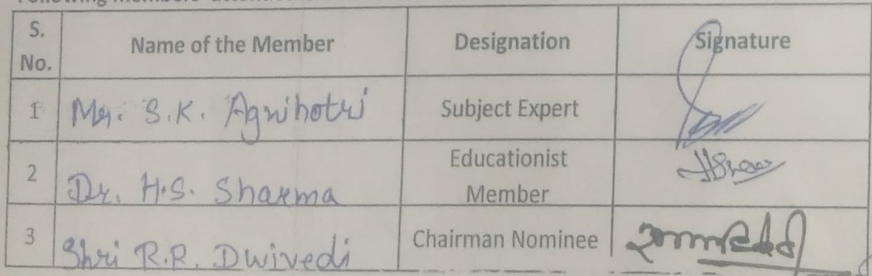 S. No. Name of the Member Designation Signature
1 Mr. S.K. Agnihotri Subject Expert
2 Dr. H.S. Sharma Educationist Member
3 Shri R.R. Dwivedi Chairman Nominee